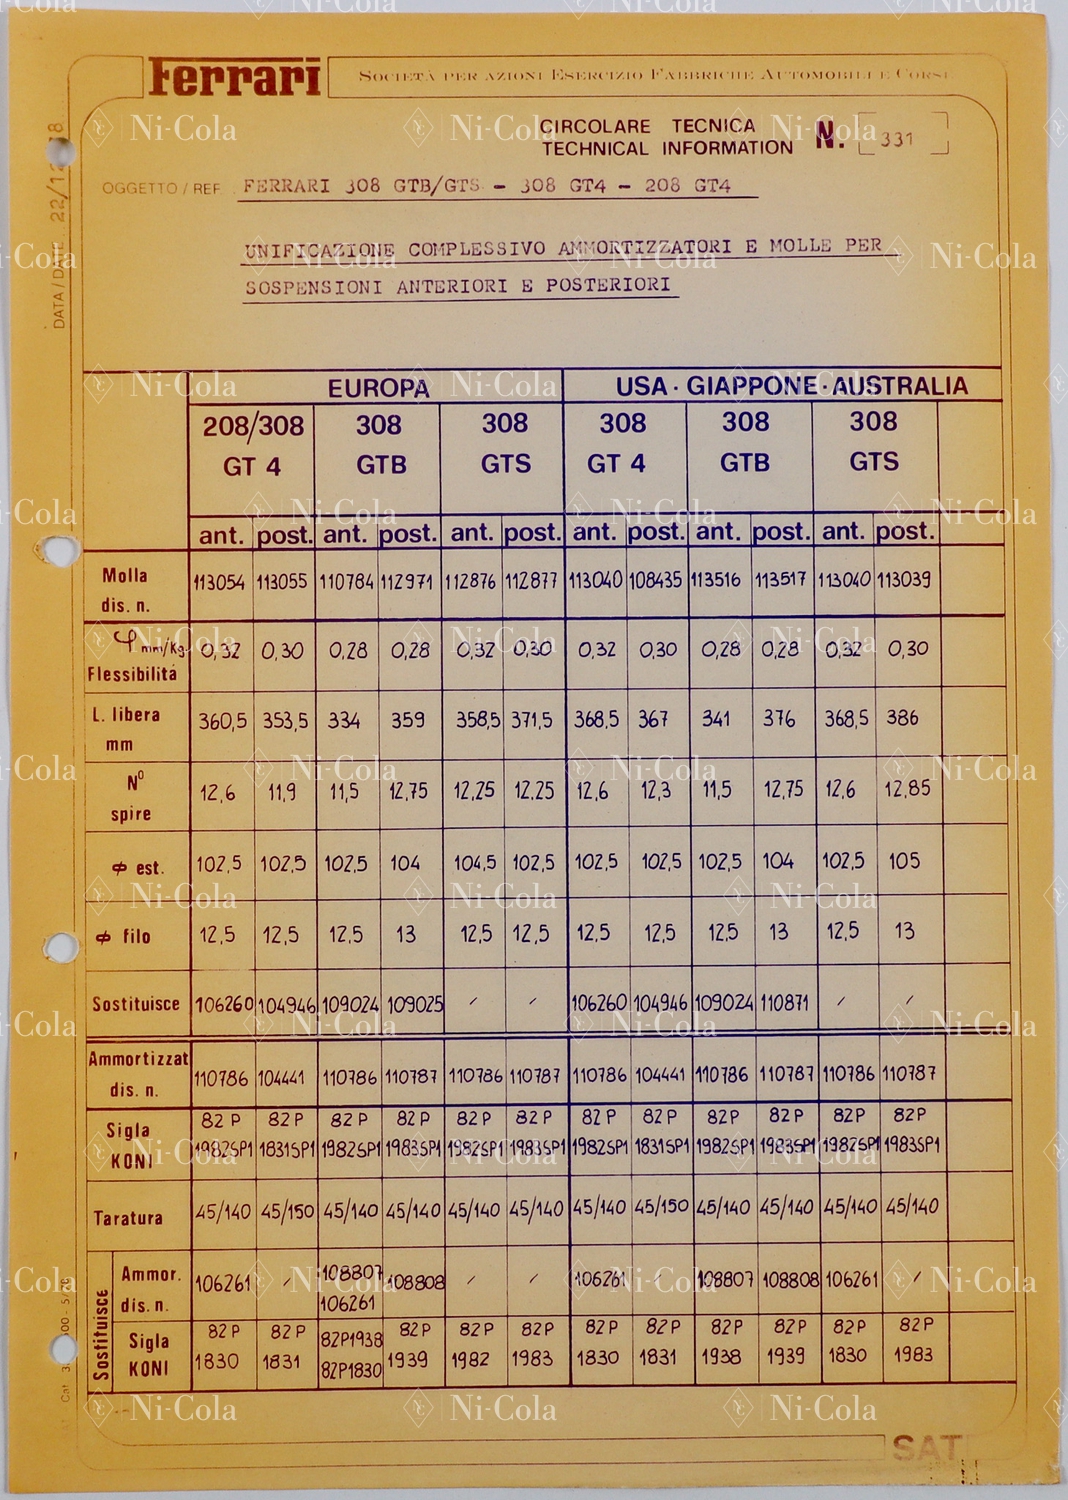 Ferrari SOCIETÀ PER AZIONI ESERCIZIO FABBRICHE AUTOMOBILI E CORSE
CIRCOLARE TECNICA
TECHNICAL INFORMATION N. 331
DATA / DATE
OGGETTO / REF. FERRARI 308 GTB/GTS - 308 GT4 - 208 GT4
UNIFICAZIONE COMPLESSIVO AMMORTIZZATORI E MOLLE PER
SOSPENSIONI ANTERIORI E POSTERIORI
EUROPA USA · GIAPPONE · AUSTRALIA
208/308 308 308 308 308 308
GT 4 GTB GTS GT 4 GTB GTS
ant. post. ant. post. ant. post. ant. post. ant. post. ant. post.
Molla dis. n. 113054 113055 110784 112971 112876 112877 113040 108435 113516 113517 113040 113039
φ mm/Kg. Flessibilità 0,32 0,30 0,28 0,28 0,32 0,30 0,32 0,30 0,28 0,28 0,32 0,30
L. libera mm 360,5 353,5 334 359 358,5 371,5 368,5 367 341 376 368,5 386
N° spire 12,6 11,9 11,5 12,75 12,25 12,25 12,6 12,3 11,5 12,75 12,6 12,85
ϕ est. 102,5 102,5 102,5 104 104,5 102,5 102,5 102,5 102,5 104 102,5 105
ϕ filo 12,5 12,5 12,5 13 12,5 12,5 12,5 12,5 12,5 13 12,5 13
Sostituisce 106260 104946 109024 109025 / / 106260 104946 109024 110871 / /
Ammortizzat dis. n. 110786 104441 110786 110787 110786 110787 110786 104441 110786 110787 110786 110787
Sigla 82 P 82 P 82 P 82 P 82 P 82 P 82 P 82 P 82P 82P 82P 82P
KONI 1982SP1 1831SP1 1982SP1 1983SP1 1982SP1 1983SP1 1982SP1 1831SP1 1982SP1 1983SP1 1982SP1 1983SP1
Taratura 45/140 45/150 45/140 45/140 45/140 45/140 45/140 45/150 45/140 45/140 45/140 45/140
Sostituisce
Ammor. dis. n. 106261 / 108807 108808 / / 106261 / 108807 108808 106261 /
106261
Sigla 82 P 82 P 82P1938 82 P 82 P 82P 82 P 82 P 82 P 82 P 82 P 82 P
KONI 1830 1831 82P1830 1939 1982 1983 1830 1831 1938 1939 1830 1983
SAT
Ni-Cola